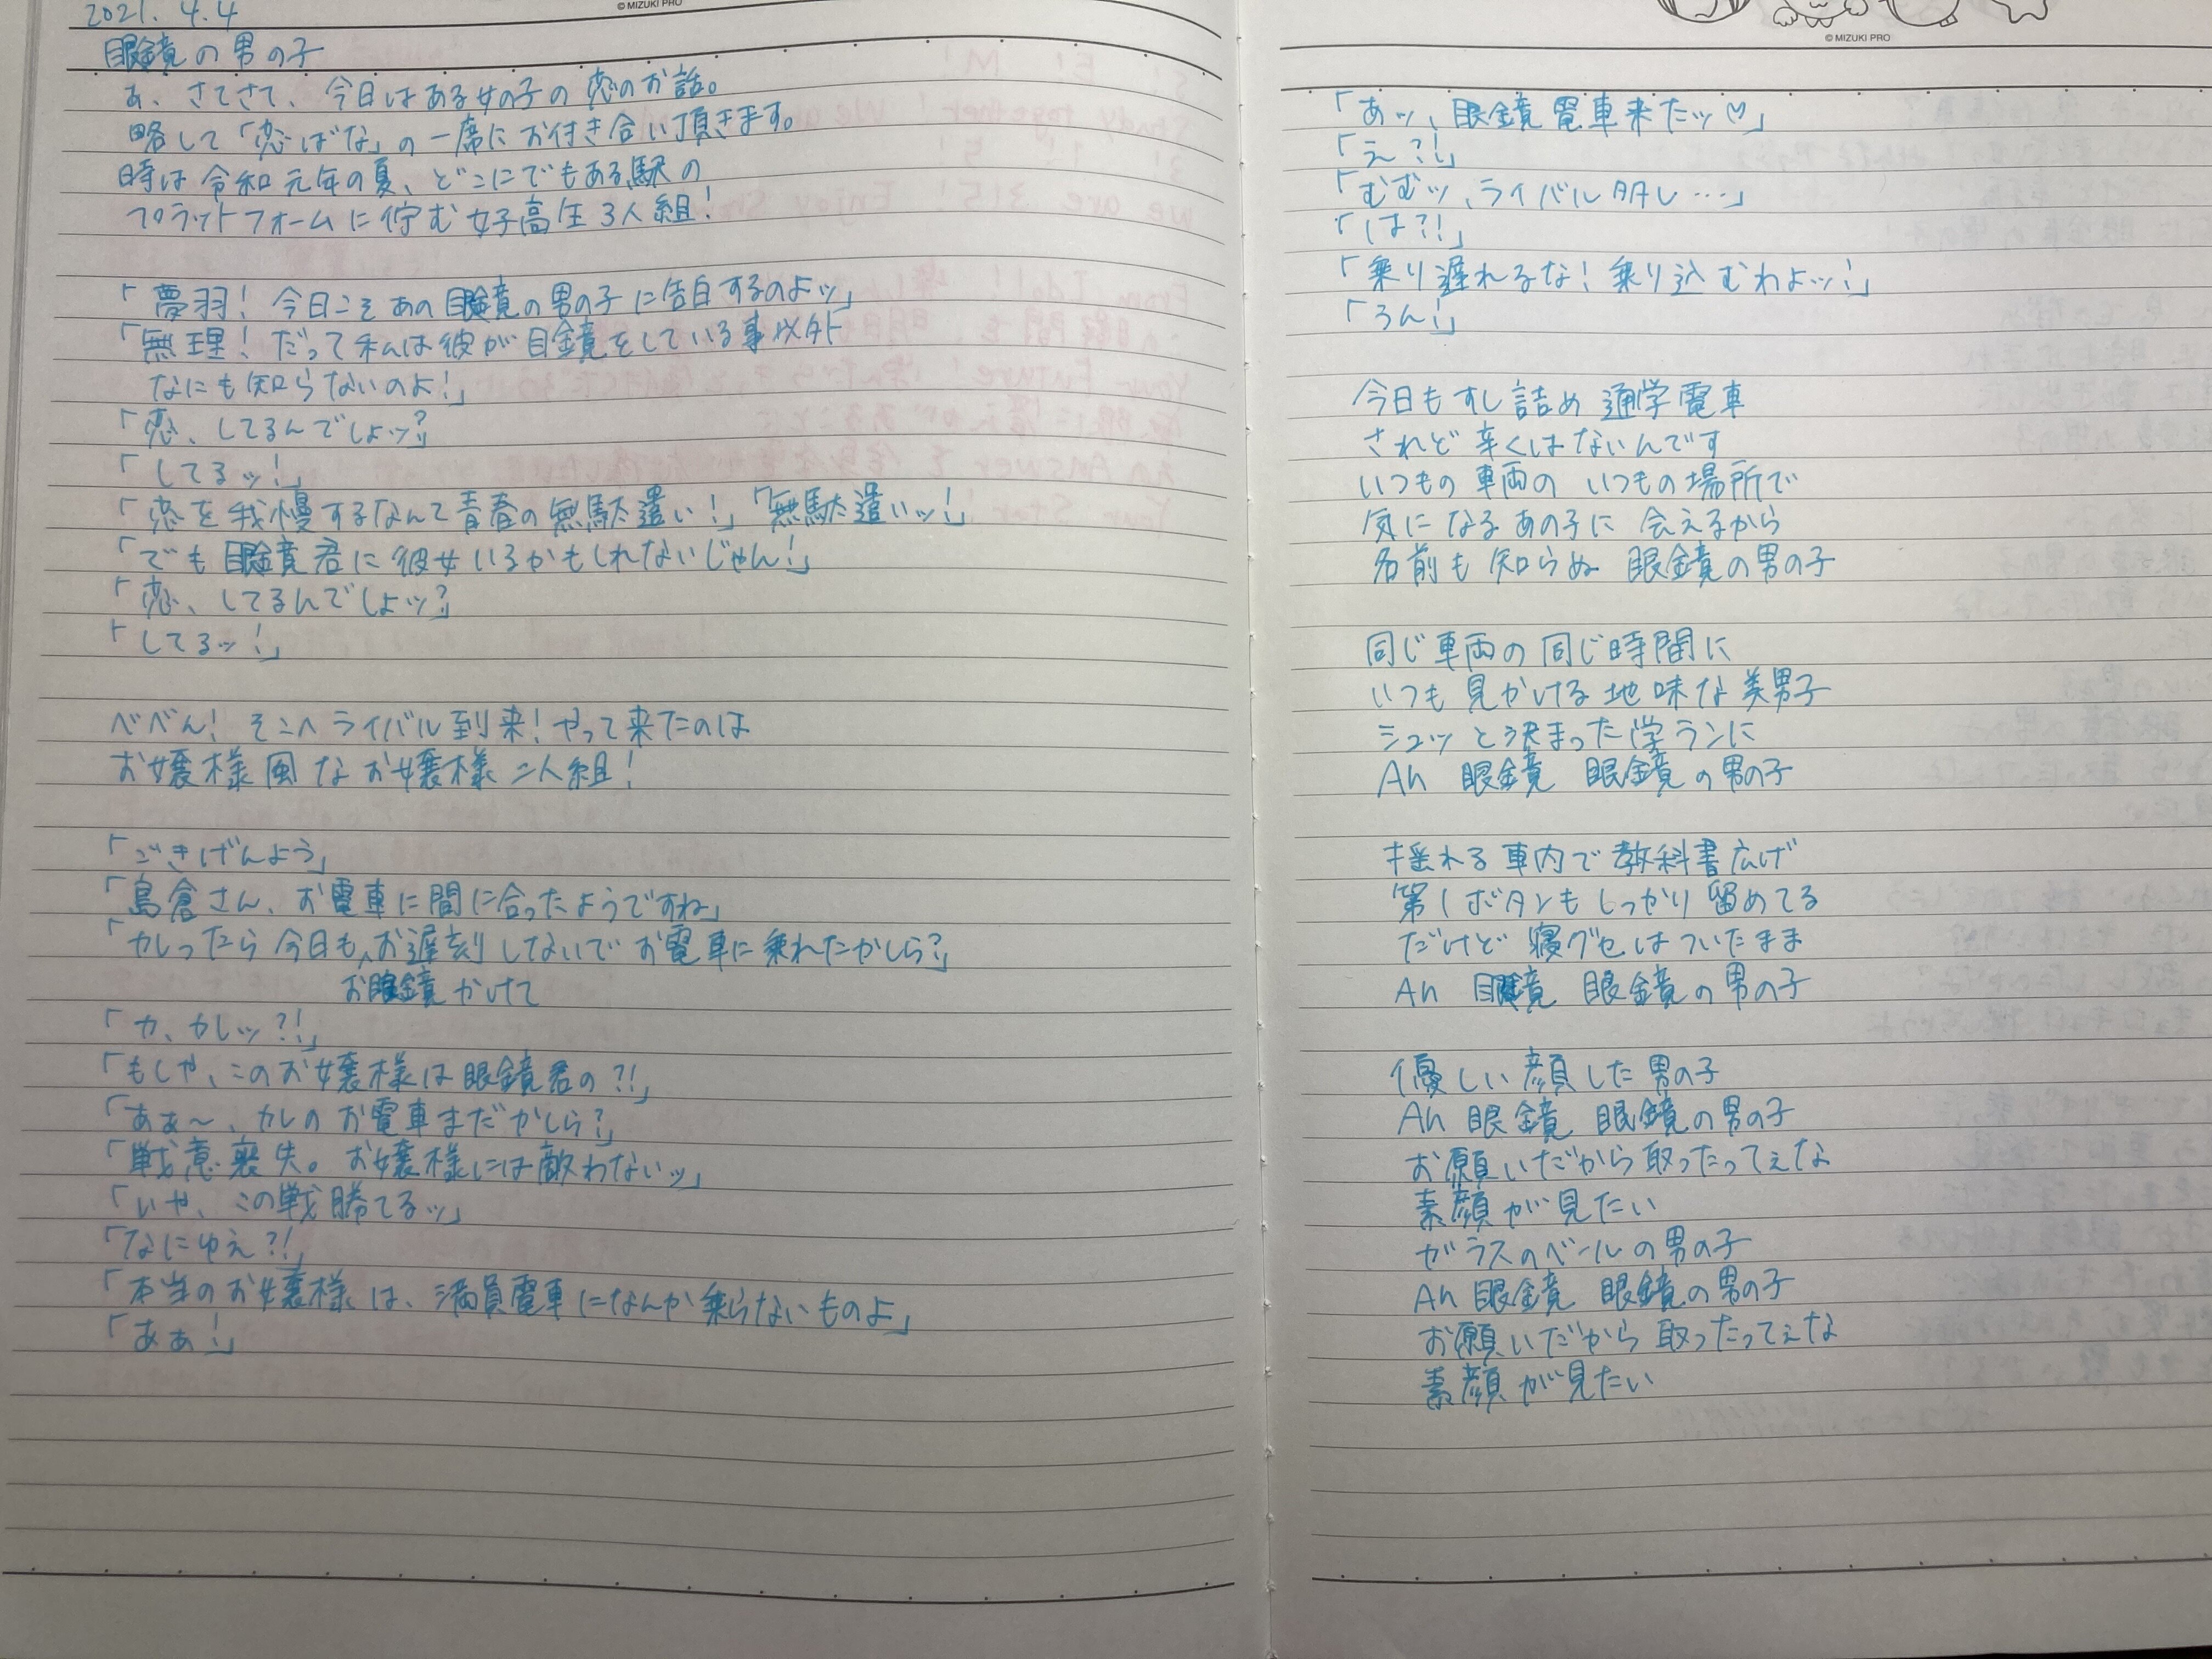 2021. 4.4
© MIZUKI PRO
眼鏡の男の子
あ、さてさて、今日はある女の子の恋のお話。
略して「恋ばな」の一席にお付き合い頂きます。
時は令和元年の夏、どこにでもある駅の
プラットフォームに佇む女子高生3人組!
「夢羽!今日こそあの眼鏡の男の子に告白するのよッ」
「無理!だって私は彼が目鏡をしている事以外
なにも知らないのよ!」
「恋、してるんでしょッ?」
「してるッ!」
「恋を我慢するなんて青春の無駄遣い!」「無駄遣いッ!」
「でも眼鏡君に彼女いるかもしれないじゃん!」
「恋、してるんでしょッ?」
「してるッ!」
べべん!そこへライバル到来!やって来たのは
お嬢様風なお嬢様二人組!
「ごきげんよう」
「島倉さん、お電車に間に合ったようですね」
「カレったら今日も、お遅刻しないでお電車に乗れたかしら?」
お眼鏡かけて
「カ、カレッ?!」
「もしや、このお嬢様は眼鏡君の?!」
「あぁ〜、カレのお電車まだかしら?」
「戦意喪失。お嬢様には敵わないッ」
「いや、この戦勝てるッ」
「なにゆえ?!」
「本当のお嬢様は、満員電車になんか乗らないものよ」
「あぁ!」
© MIZUKI PRO
「あッ、眼鏡電車来たッ♡」
「え?!」
「むむッ、ライバル多し…」
「は?!」
「乗り遅れるな!乗り込むわよッ!」
「うん!」
今日もすし詰め 通学電車
されど辛くはないんです
いつもの車両の いつもの場所で
気になるあの子に 会えるから
名前も知らぬ 眼鏡の男の子
同じ車両の同じ時間に
いつも見かける地味な美男子
シュッと決まった学ランに
Ah 眼鏡 眼鏡の男の子
揺れる車内で教科書広げ
第1ボタンもしっかり留めてる
だけど寝グセはついたまま
Ah 眼鏡 眼鏡の男の子
優しい顔した男の子
Ah 眼鏡 眼鏡の男の子
お願いだから取ったってぇな
素顔が見たい
ガラスのベールの男の子
Ah 眼鏡 眼鏡の男の子
お願いだから取ったってぇな
素顔が見たい